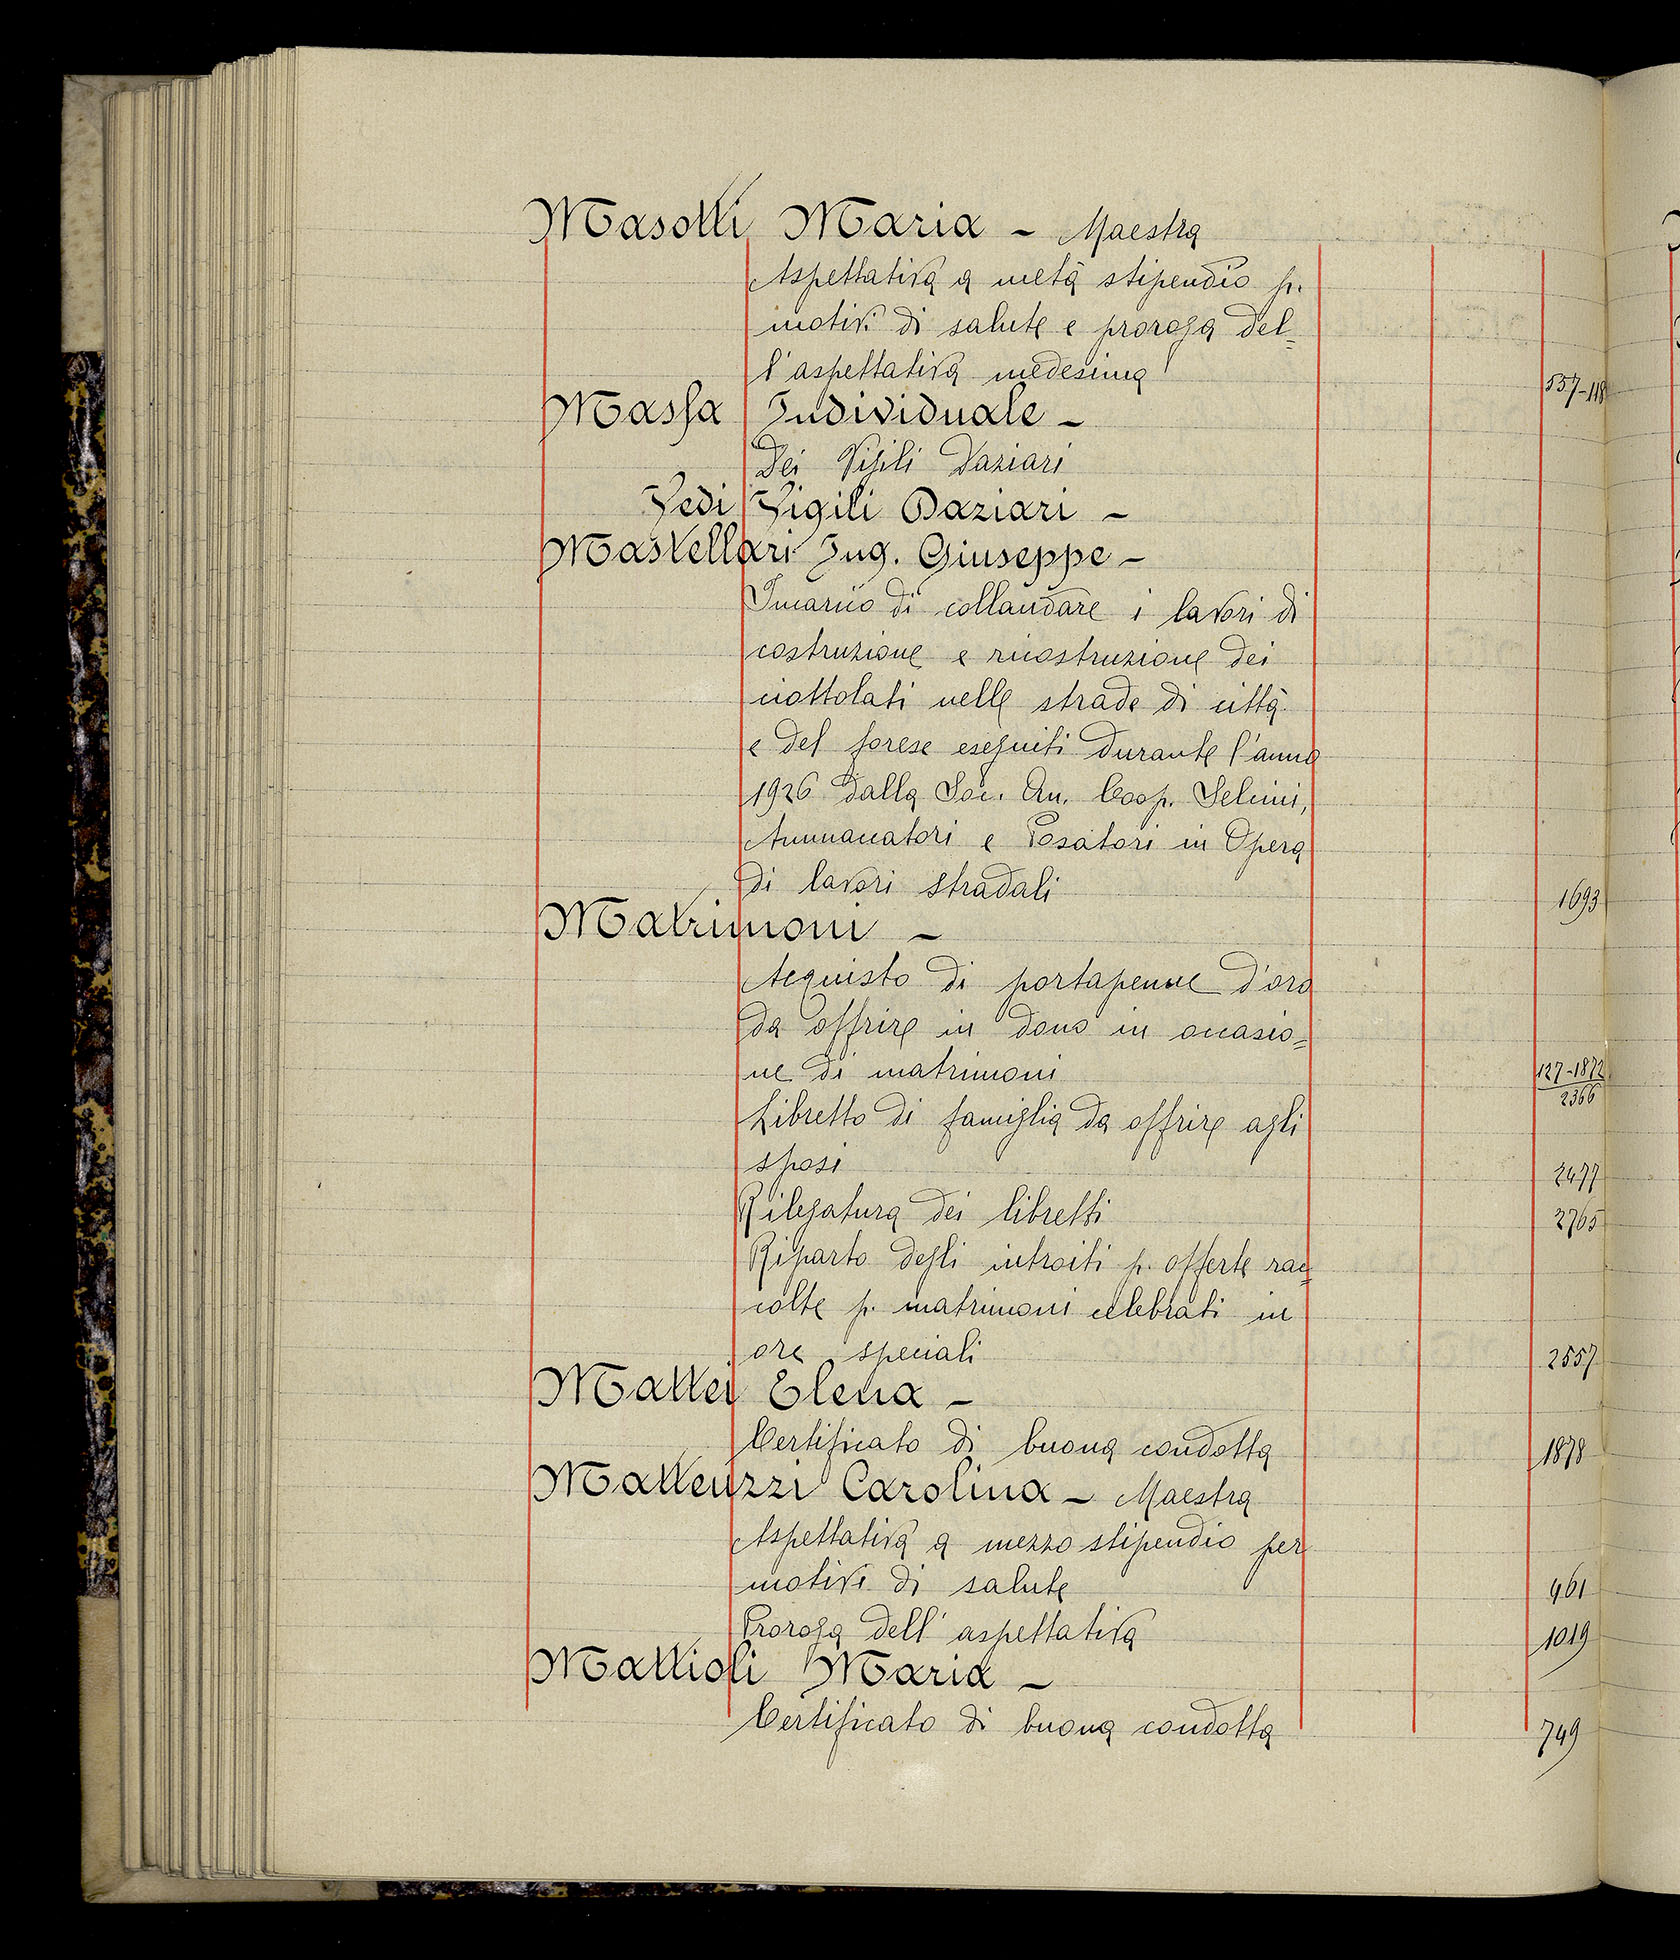 Masotti Maria - Maestra
Aspettativa a metà stipendio p.
motivi di salute e proroga del=
l'aspettativa medesima 557-118
Massa Individuale -
Dei Vigili Daziari
Vedi Vigili Daziari -
Mastellari Ing. Giuseppe -
Incarico di collaudare i lavori di
costruzione e ricostruzione dei
ciottolati nelle strade di città
e del forese eseguiti durante l'anno
1926 dalla Soc. An. Coop. Selcini,
Ammanatori e Posatori in Opera
di lavori stradali 1693
Matrimoni -
Acquisto di portapenne d'oro
da offrire in dono in occasio=
ne di matrimoni 127-1872
2366
Libretto di famiglia da offrire agli
sposi 2477
Rilegatura dei libretti 2765
Riparto degli introiti p. offerte rac=
colte p. matrimoni celebrati in
ore speciali 2557
Mattei Elena -
Certificato di buona condotta 1878
Matteuzzi Carolina - Maestra
Aspettativa a mezzo stipendio per
motivi di salute 461
Proroga dell'aspettativa 1019
Mattioli Maria -
Certificato di buona condotta 749